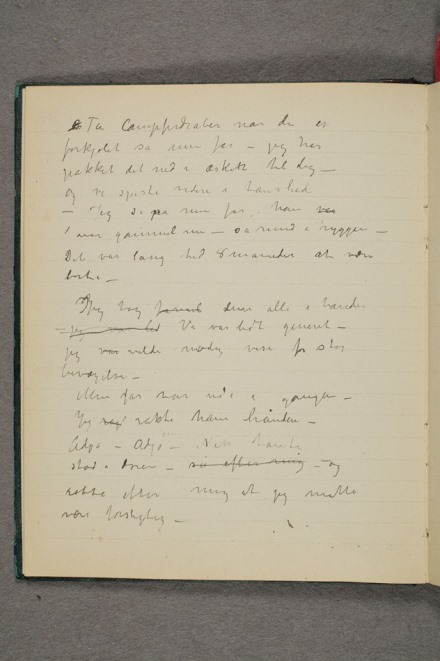 Ta Campferdraaber naar du er
forkjølet sa min far – jeg har
pakket det ned i æsken til dig –
og vi spiste videre i taushed
– Jeg så på min far, han
var gammel nu – så rund i ryggen –
Det var lang tid 8 måneder at være
borte –
Jeg tog dem alle i handen
Vi var lidt generet –
jeg vilde nødig vise for stor
bevægelse –
Men far var ude i gangen –
Jeg rakte ham hånden –
Adjø – Adjø –
stod i døren – så efter mig – og
rakte efter mig at jeg måtte
være forsigtig –